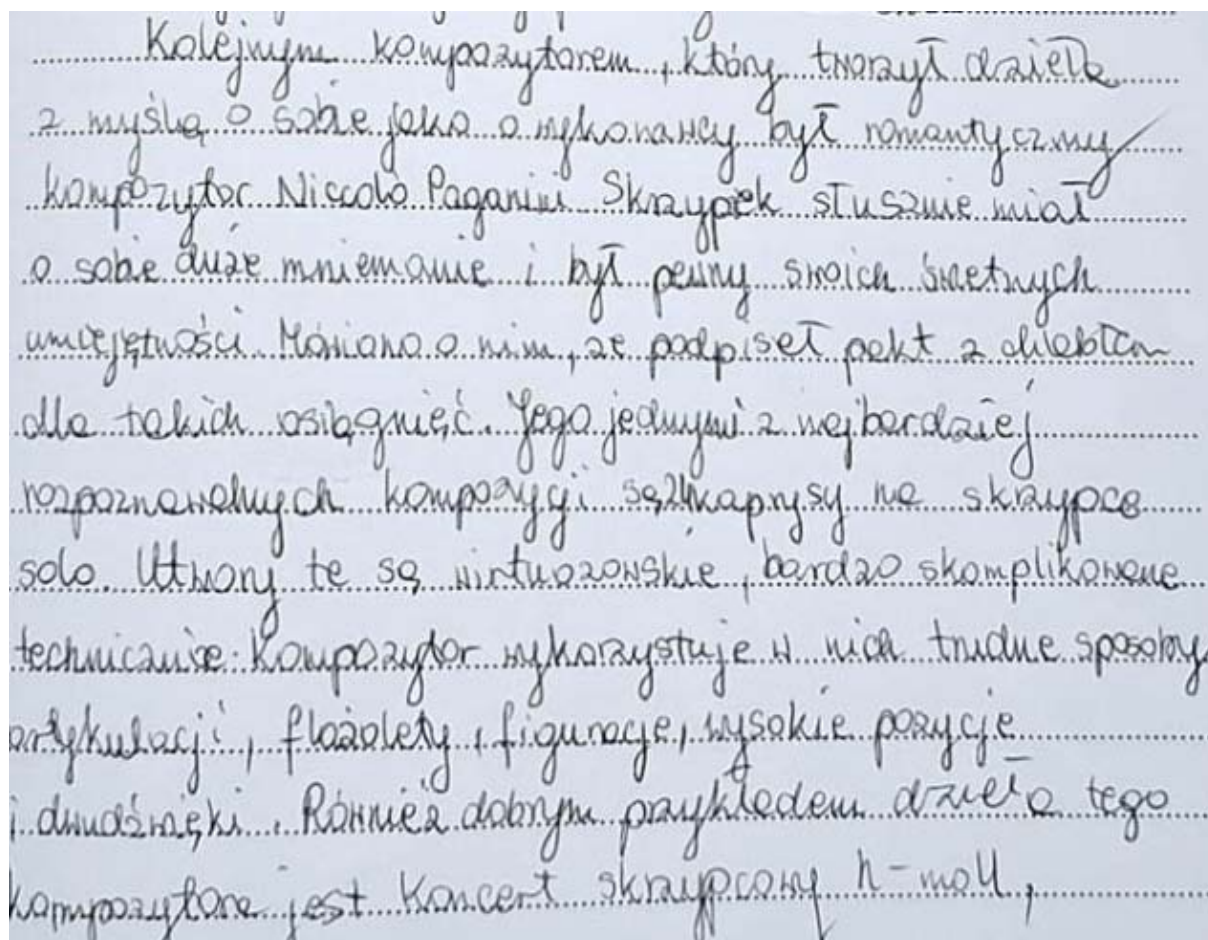 Kolejnym kompozytorem, który tworzył dzieła
z myślą o sobie jako o wykonawcy był romantyczny
kompozytor Niccolo Paganini Skrzypek słusznie miał
o sobie duże mniemanie i był pewny swoich świetnych
umiejętności. Mówiono o nim, że podpisał pakt z diabłem
dla takich osiągnięć. Jego jednymi z najbardziej
rozpoznawalnych kompozycji są 24 kaprysy na skrzypce
solo. Utwory te są wirtuozowskie, bardzo skomplikowane
technicznie. Kompozytor wykorzystuje w nich trudne sposoby
artykulacji, flażolety, figuracje, wysokie pozycje
i dwudźwięki. Również dobrym przykładem dzieła tego
kompozytora jest Koncert skrzypcowy h-moll,